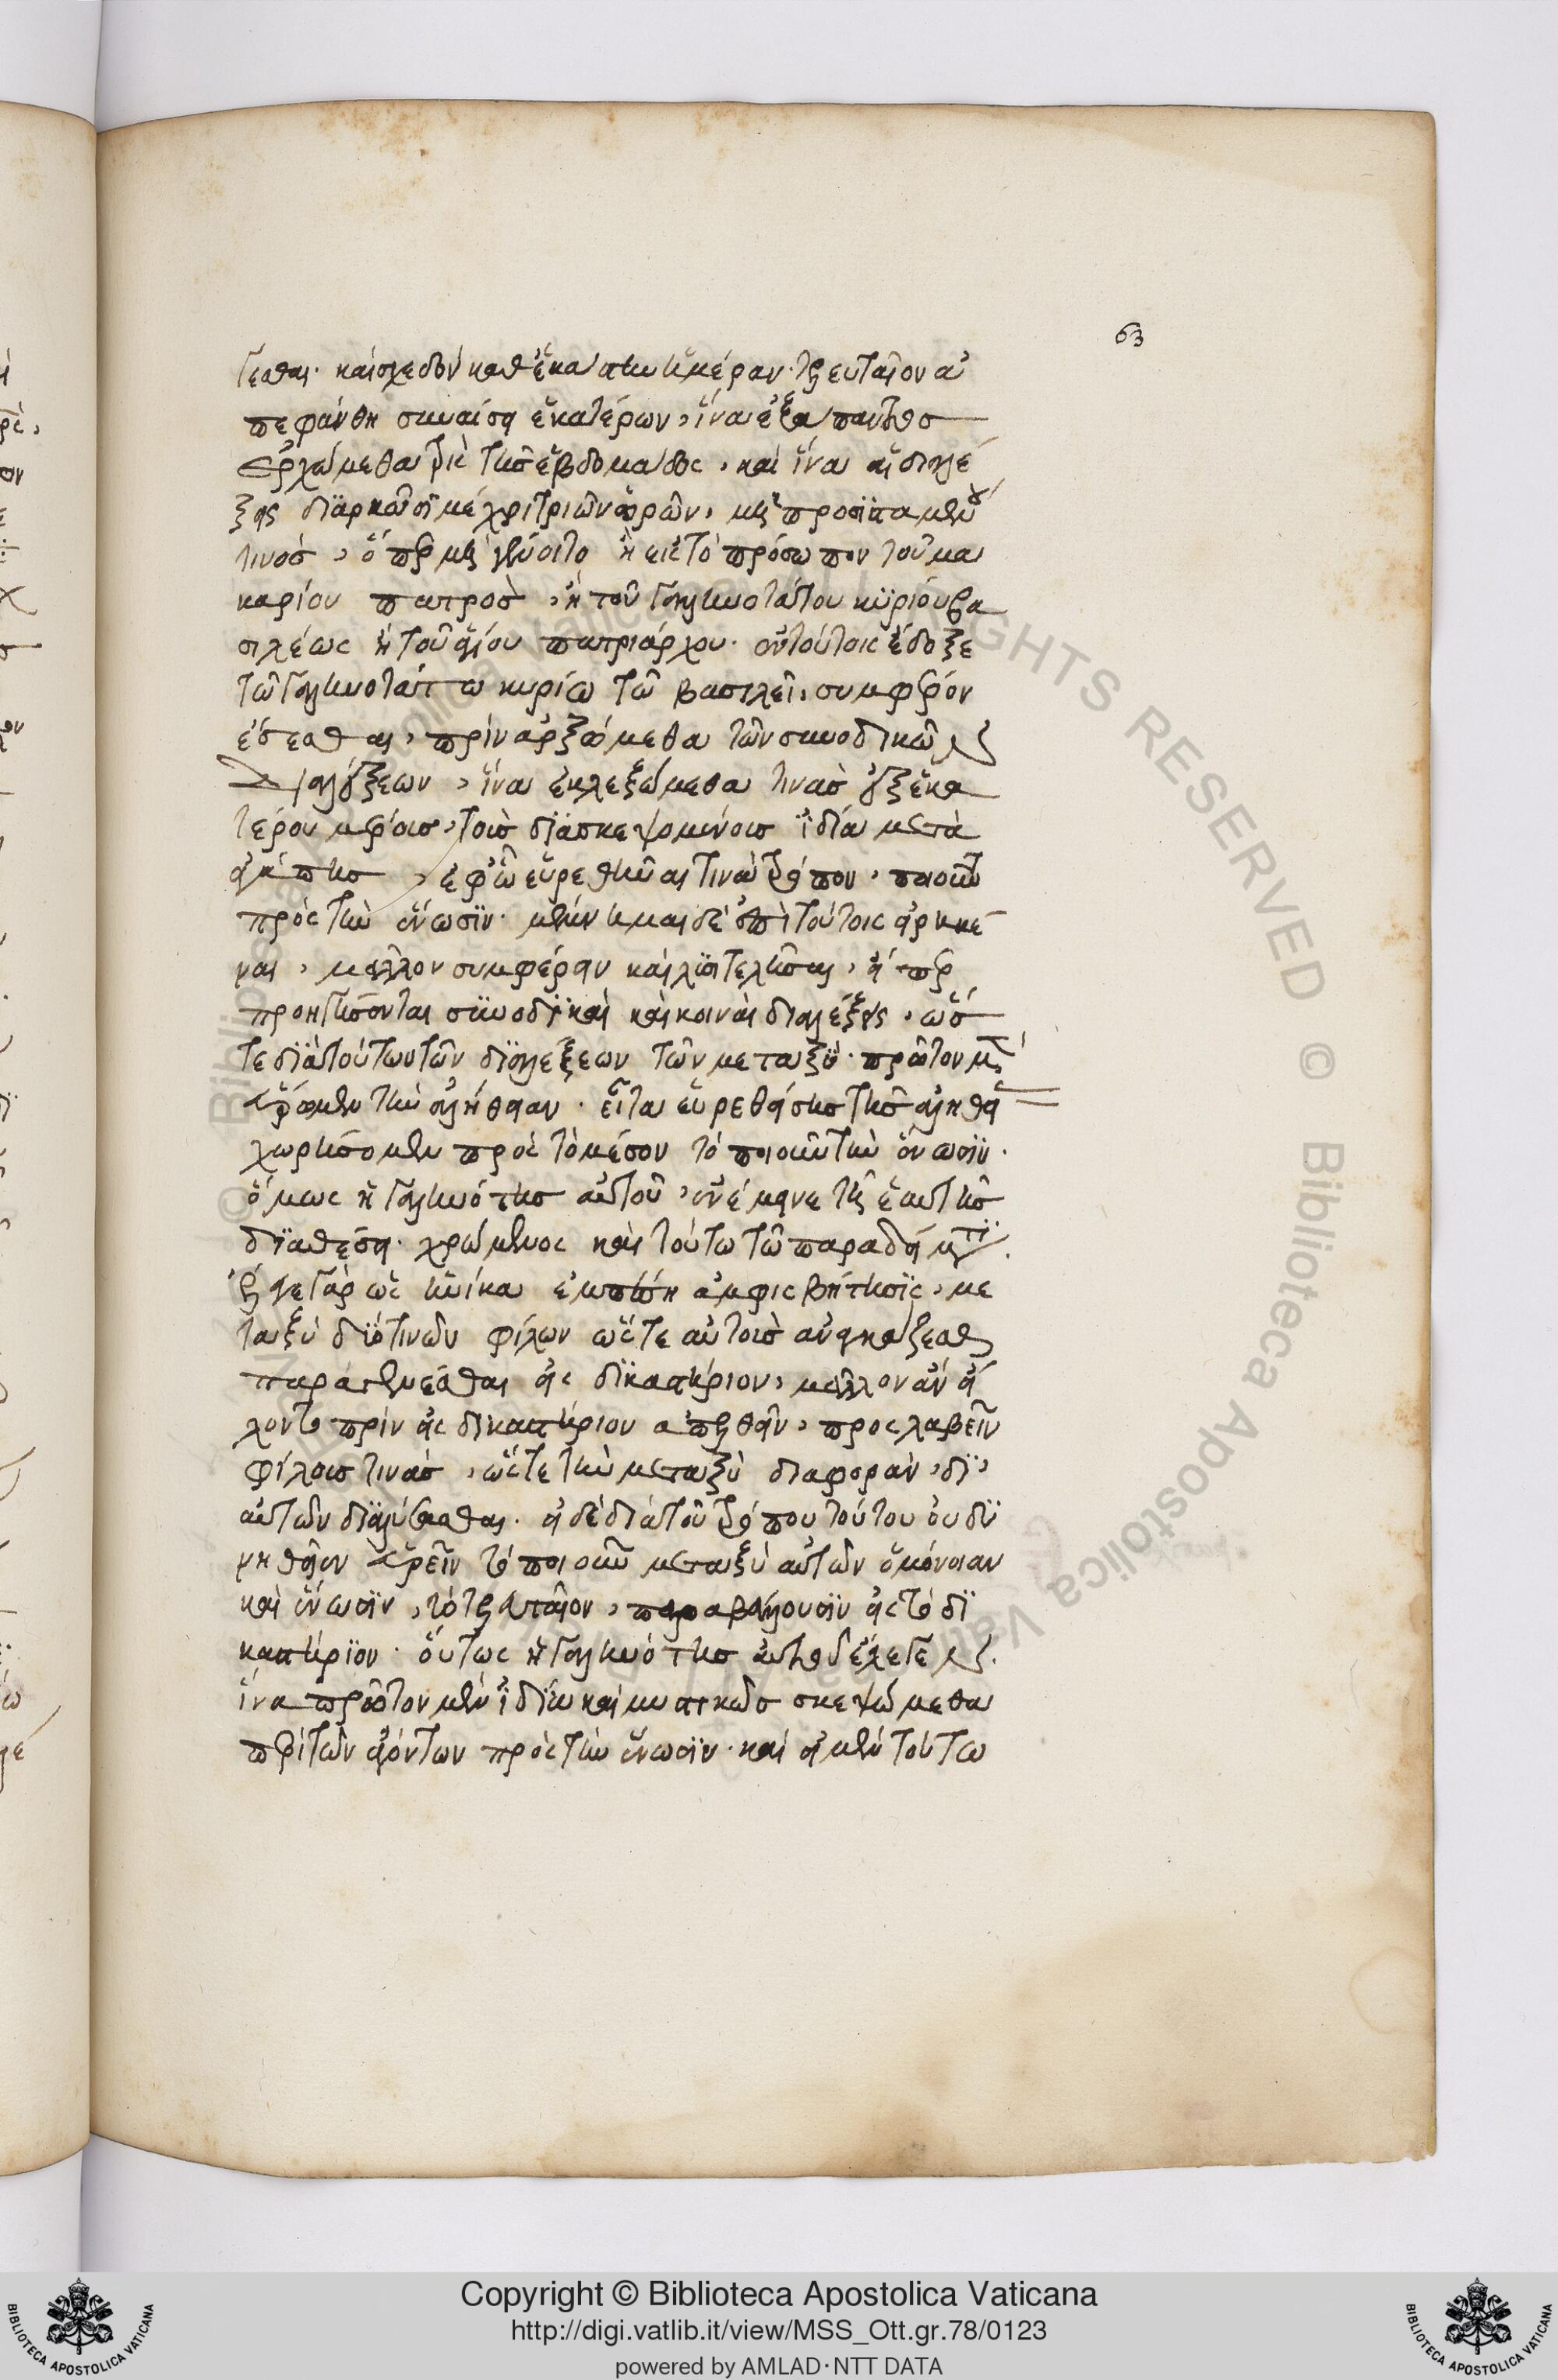 63
γεσθαι· καὶ σχεδὸν καθ' ἑκάστην ἡμέραν· τελευταῖον ἀ
πεφάνθη συναίσει ἑκατέρων, ἵνα ἐξάπαντος
ἐρχώμεθα τρὶς τῆς ἑβδομάδος, καὶ ἵνα αἱ διαλέ
ξεις διαρκῶσι μέχρι τριῶν ὡρῶν, μὴ προσισταμένου
τινός, ὅπερ μὴ γένοιτο ἢ εἰς τὸ πρόσωπον τοῦ μα
καρίου πατρὸς, ἢ τοῦ γαληνοτάτου κυρίου βα
σιλέως ἢ τοῦ ἁγίου πατριάρχου· ἐν τούτοις ἔδοξε
τῷ γαληνοτάτῳ κυρίῳ τῷ βασιλεῖ, συμφέρον
ἔσεσθαι, πρὶν ἀρξώμεθα τῶν συνοδικῶν
διαλέξεων, ἵνα ἐκλεξώμεθα τινὰς ἐξ ἑκα
τέρου μέρους, τοὺς διασκεψομένους ἰδίᾳ μετὰ
ἀγάπης, ἐφ' ᾧ εὑρεθῆναι τινὰ τρόπον, ποιοῦντα
πρὸς τὴν ἕνωσιν· μὲν ἡμᾶς δὲ ἐπὶ τούτοις εἰρηκέ
ναι, μᾶλλον συμφέρειν καὶ λυσιτελῆσαι, εἴπερ
προηγήσονται συνοδικαὶ καὶ κοιναὶ διαλέξεις, ὥσ
τε διὰ τούτων τῶν διαλέξεων τῶν μεταξὺ· πρῶτον μὲν
εὕρωμεν τὴν ἀλήθειαν· εἶτα εὑρεθείσης τῆς ἀληθεί
χωρήσομεν πρὸς τὸ μέσον τὸ ποιοῦν τὴν ἕνωσιν·
ὅμως ἡ γαληνότης αὐτοῦ, ἐνέμεινε τῇ ἑαυτῆς
διαθέσει· χρώμενος καὶ τούτῳ τῷ παραδείγματι
ἔλεγε γὰρ ὡς ἡνίκα ἐμπέσῃ ἀμφισβήτησις, με
ταξύ τινων φίλων ὥστε αὐτοὺς ἀναγκάζεσθαι
παραγενέσθαι εἰς δικαστήριον, μᾶλλον ἂν εἵ
λοντο πρὶν εἰς δικαστήριον ἀπελθεῖν, προσλαβεῖν
φίλους τινὰς, ὥστε τὴν μεταξὺ διαφορὰν, δι'
αὐτῶν διαλύσασθαι· εἰ δὲ διὰ τοῦ τρόπου τούτου οὐ δυ
νηθεῖεν εὑρεῖν τὸ ποιοῦν μεταξὺ αὐτῶν ὁμόνοιαν
καὶ ἕνωσιν, τὸ τελευταῖον, παραβάλουσιν εἰς τὸ δι
καστήριον· οὕτως ἡ γαληνότης αὐτοῦ
ἵνα πρῶτον μὲν ἰδίᾳ καὶ μυστικῶς σκεψώμεθα
περὶ τῶν ἀγόντων πρὸς τὴν ἕνωσιν· καὶ εἰ μὲν τούτῳ
Copyright © Biblioteca Apostolica Vaticana
http://digi.vatlib.it/view/MSS_Ott.gr.78/0123
powered by AMLAD·NTT DATA